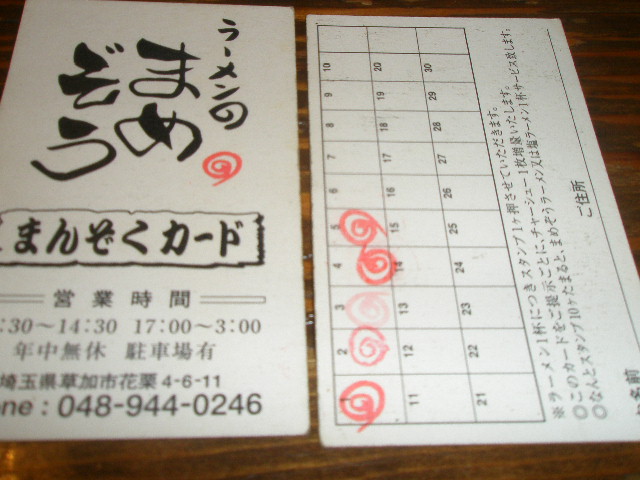 ラーメンの
まめ
ぞう
まんぞくカード
営業時間
:30～14:30 17:00～3:00
年中無休 駐車場有
埼玉県草加市花栗4-6-11
one : 048-944-0246
10 20 30
9 19 29
8 18 28
7 17 27
6 16 26
5 15 25
4 14 24
3 13 23
2 12 22
1 11 21
※ラーメン1杯につきスタンプ1ヶ押させていただきます。
◎このカードをご提示ごとに、チャーシュー1枚増量いたします。
◎なんとスタンプ10ヶたまると、まめぞうラーメン又は塩ラーメン1杯サービス致します。
ご住所
名前